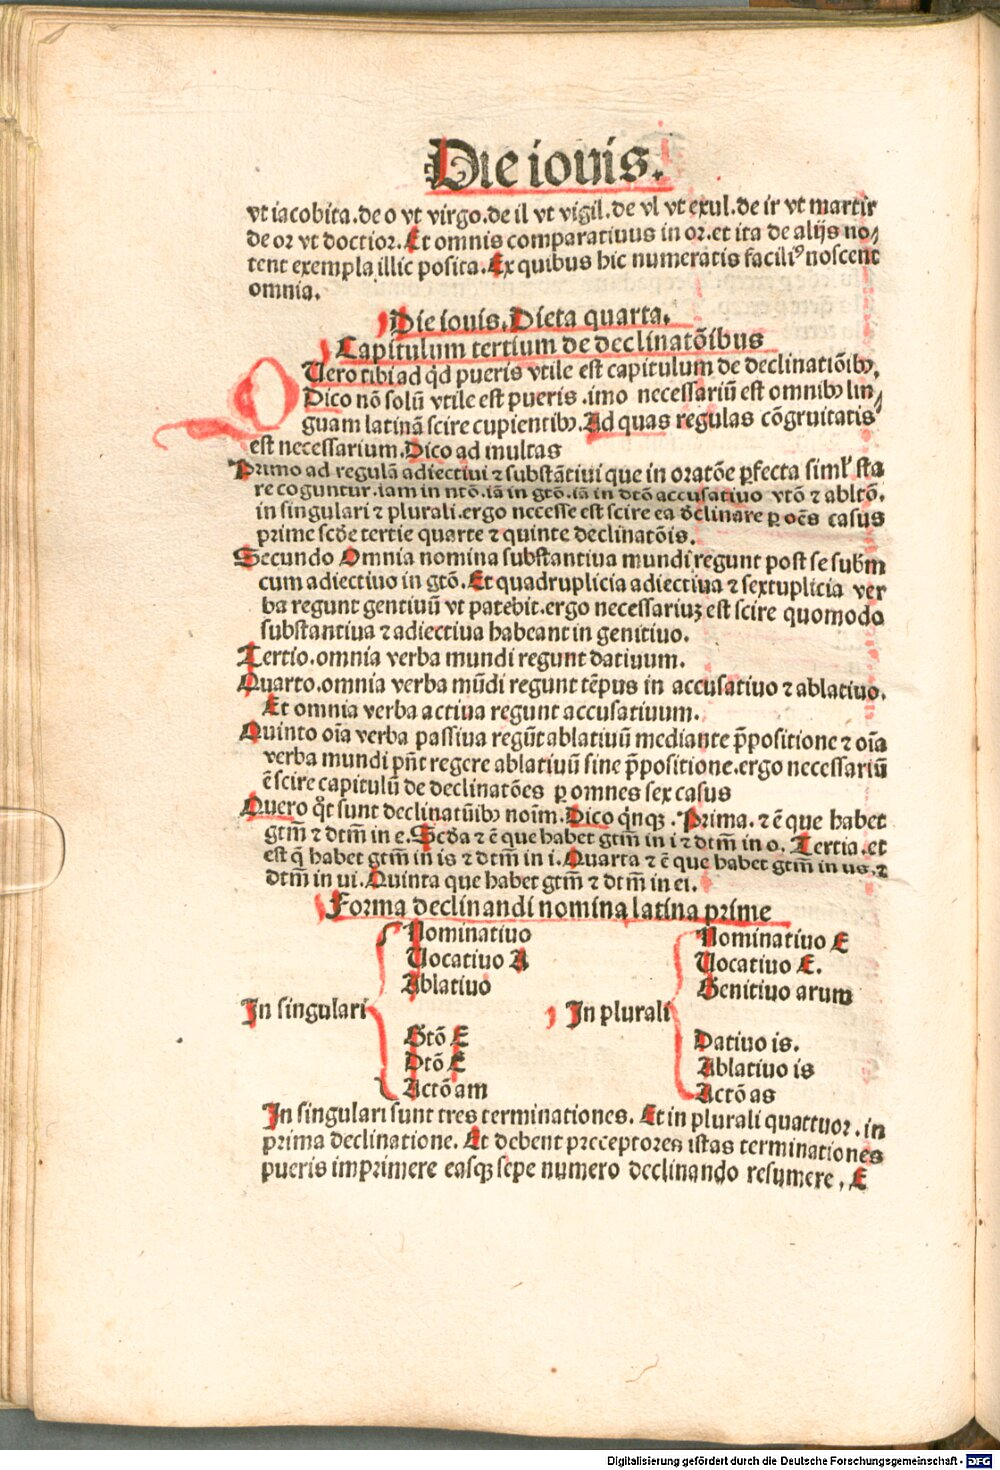 Die iouis.
vt iacobita.de o vt virgo.de il vt vigil.de vl vt exul.de ir vt martir
de or vt doctior.Et omnis comparatiuus in or.et ita de alijs no/
tent exempla illic posita.Ex quibus hic numeratis faciliꝰ noscent
omnia.
Die iouis.Dieta quarta.
Capitulum tertium de declinatõibus
QUero tibi ad qd pueris vtile est capitulum de declinatiõibꝫ.
Dico nõ solũ vtile est pueris .imo necessariũ est omnibꝫ lin/
guam latinã scire cupientibꝫ.Ad quas regulas cõgruitatis
est necessarium.Dico ad multas
Primo ad regulã adiectiui ⁊ substãtiui que in oratõe ꝑfecta simĺ sta
re coguntur.iam in ntõ.iã in gtõ.iã in dtõ accusatiuo vtõ ⁊ abltõ.
in singulari ⁊ plurali.ergo necesse est scire ea d̃clinare ꝑ oẽs casus
prime scd̃e tertie quarte ⁊ quinte declinatõis.
Secundo Omnia nomina substantiua mundi regunt post se subm̃
cum adiectiuo in gtõ.Et quadruplicia adiectiua ⁊ sextuplicia ver
ba regunt gentiuũ vt patebit.ergo necessariuꝫ est scire quomodo
substantiua ⁊ adiectiua habeant in genitiuo.
Tertio.omnia verba mundi regunt datiuum.
Quarto.omnia verba mũdi regunt tẽpus in accusatiuo ⁊ ablatiuo.
Et omnia verba actiua regunt accusatiuum.
Quinto oĩa verba passiua regũt ablatiuũ mediante p̃positione ⁊ oĩa
verba mundi pñt regere ablatiuũ sine p̃positione.ergo necessariũ
ẽ scire capitulũ de declinatões ꝑ omnes sex casus
Quero q̃t sunt declinatũibꝫ noĩm.Dico q̃nqꝫ .Prima. ⁊ ẽ que habet
gtm̃ ⁊ dtm̃ in e.Scd̃a ⁊ ẽ que habet gtm̃ in i ⁊ dtm̃ in o. Tertia.et
est q̃ habet gtm̃ in is ⁊ dtm̃ in i.Quarta ⁊ ẽ que habet gtm̃ in us.⁊
dtm̃ in ui.Quinta que habet gtm̃ ⁊ dtm̃ in ei.
Forma declinandi nomina latina prime
In singulari
Nominatiuo
Uocatiuo A
Ablatiuo
Gtõ E
Dtõ E
Actõ am
In plurali
Nominatiuo E
Uocatiuo E.
Genitiuo arum
Datiuo is.
Ablatiuo is
Actõ as
In singulari sunt tres terminationes. Et in plurali quattuor.in
prima declinatione. Et debent preceptores istas terminationes
pueris imprimere easqꝫ sepe numero declinando resumere. E
Digitalisierung gefördert durch die Deutsche Forschungsgemeinschaft - DFG